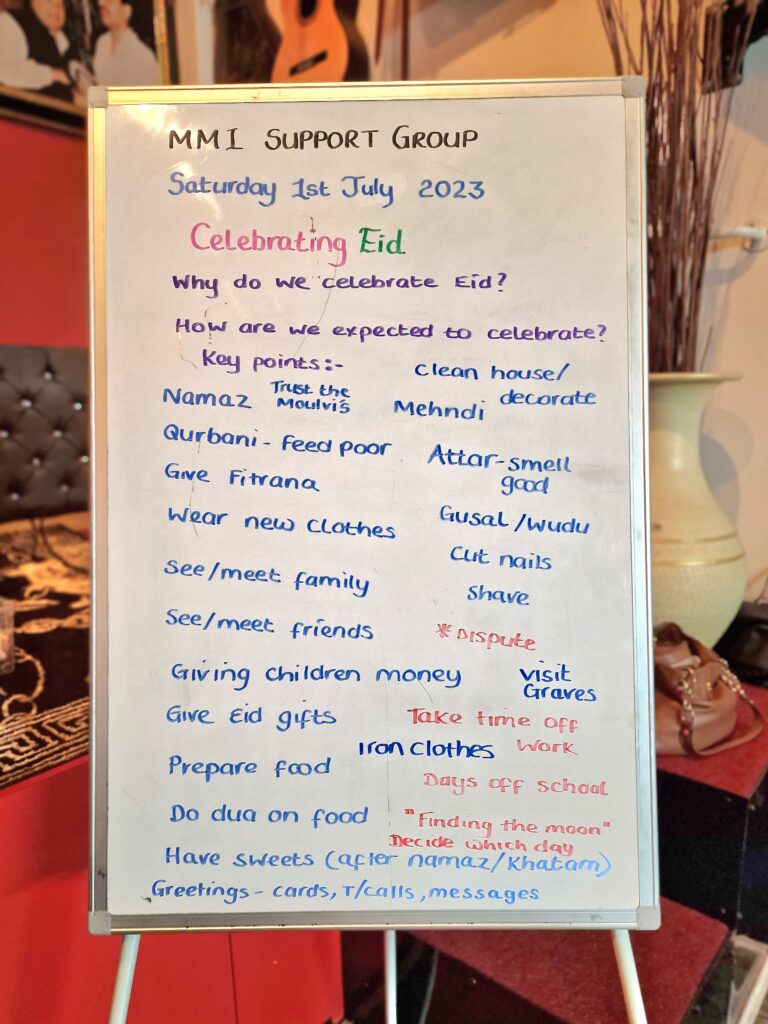 MMI SUPPORT GROUP
Saturday 1st July 2023
Celebrating Eid
Why do we celebrate Eid?
How are we expected to celebrate?
Key points:-
Clean house/
decorate
Namaz
Trust the
Moulvi's
Mehndi
Qurbani - feed poor
Attar-smell
good
Give Fitrana
Gusal/wudu
Wear new clothes
Cut nails
See/meet family
Shave
See/meet friends
* DISPUTE
Giving children money
visit
Graves
Give Eid gifts
Take time off
work
Iron clothes
Prepare food
Days off school
Do dua on food
"Finding the moon"
Decide which day
Have sweets (after namaz/Khatam)
Greetings - cards, T/calls, messages